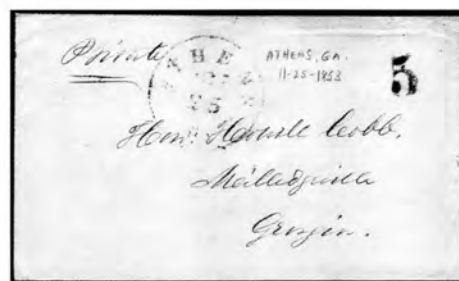 Private
ATHENS, GA.
11-25-1853
5
25
Hon. Howell Cobb,
Milledgeville
Georgia.